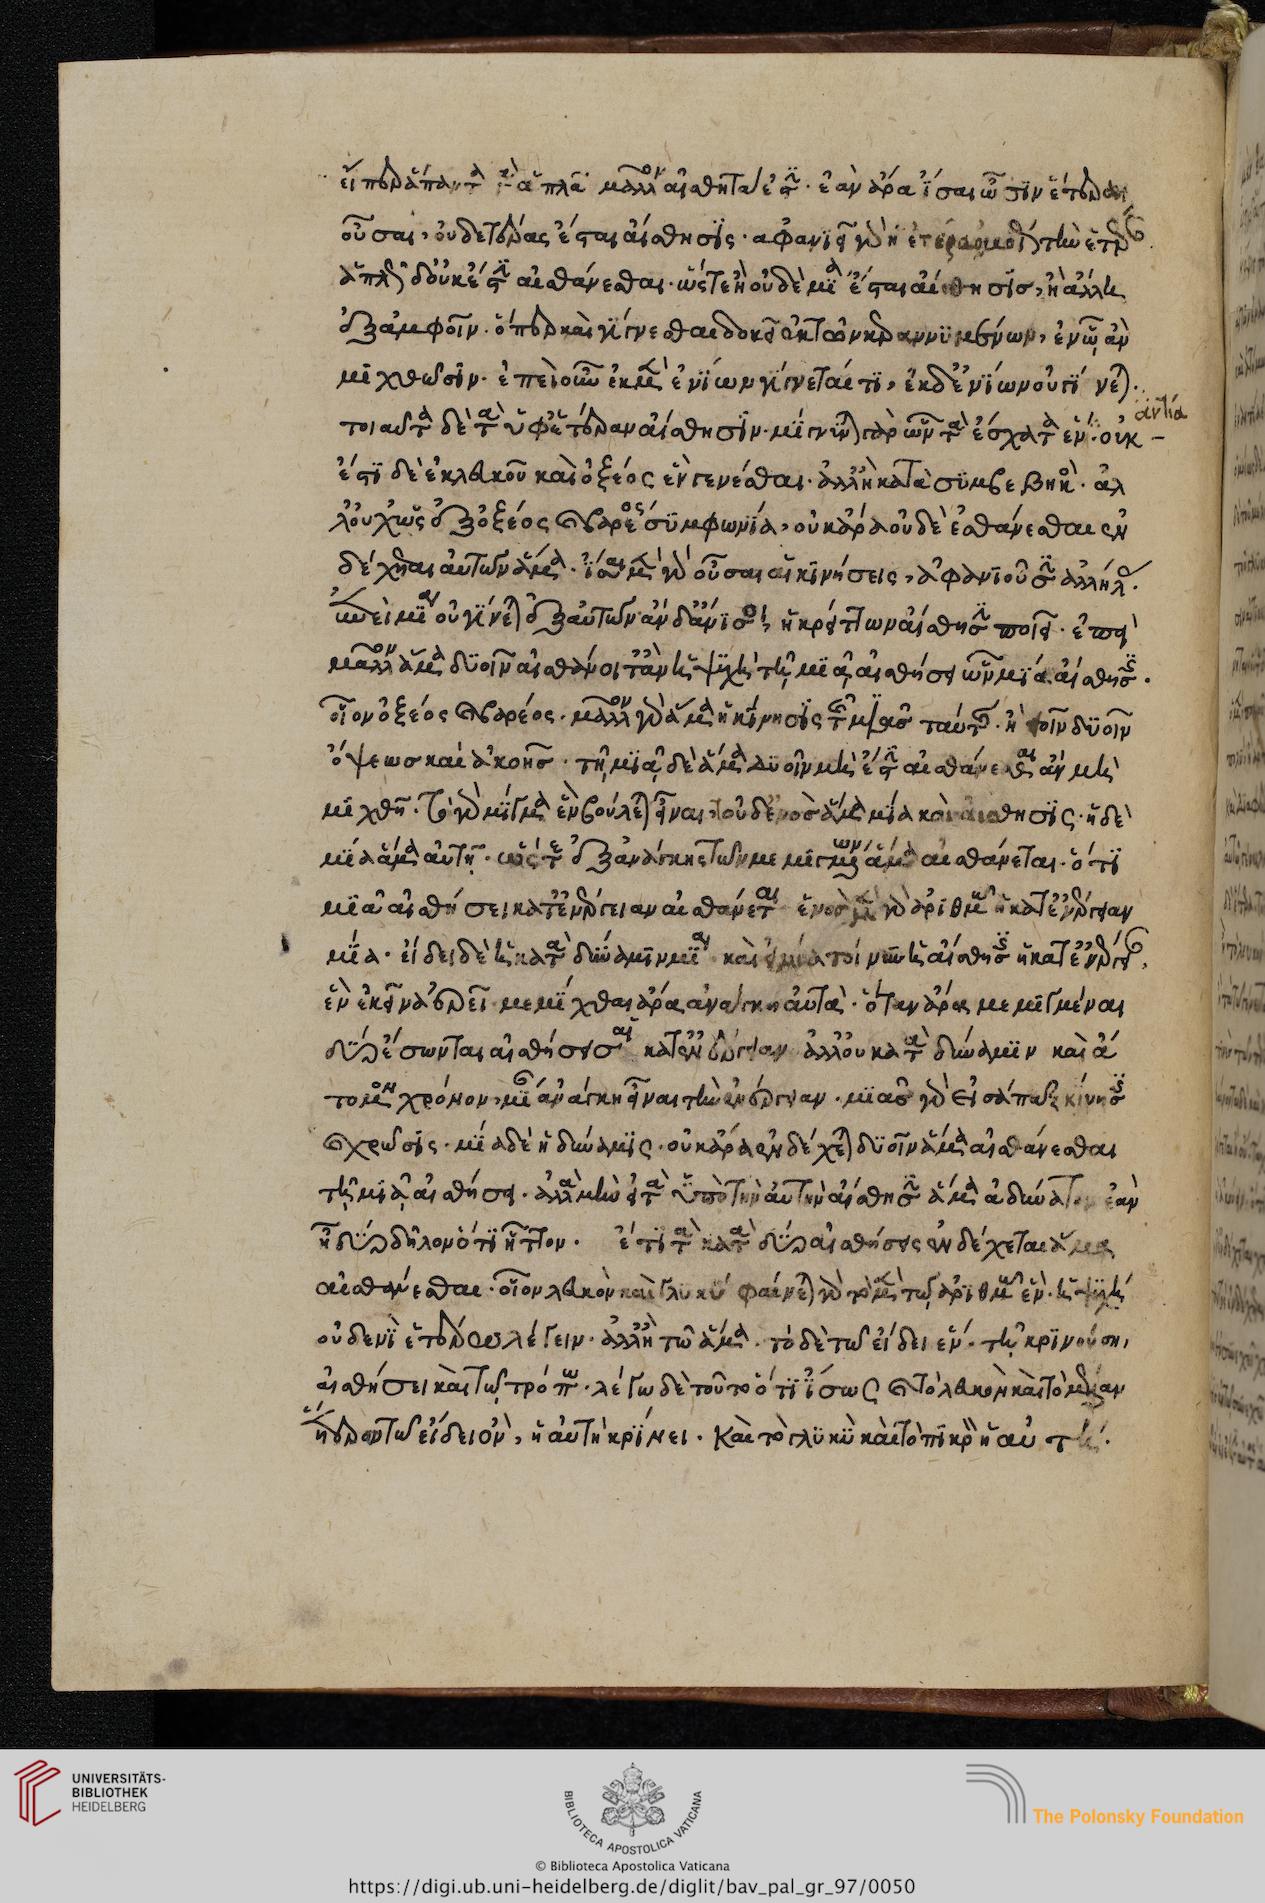 εἴπερ ἅπαντα τὰ ἁπλᾶ μᾶλλον αἰσθητά ἐστιν· ἐὰν ἄρα ἴσαι ὦσιν ἕτεραι
οὖσαι, οὐδετέρας ἔσται αἴσθησις· ἀφανιεῖ γὰρ ἡ ἑτέρα ὁμοίως τὴν ἑτέραν
ἁπλῆς δ' οὐκ ἔστιν αἰσθάνεσθαι· ὥστε ἢ οὐδὲ μία ἔσται αἴσθησις, ἢ ἄλλη
ἐξ ἀμφοῖν· ὅπερ καὶ γίνεσθαι δοκεῖ ἐκ τῶν κεραννυμένων, ἐν ᾧ ἂν
μιχθῶσιν· ἐπεὶ οὖν ἐκ μὲν ἐνίων γίνεταί τι, ἐκ δ' ἐνίων οὐ γίνεται·
τοιαῦτα δὲ τὰ ὑφ' ἑτέραν αἴσθησιν· μίγνυνται γὰρ ὧν τὰ ἔσχατα ἐναντία· οὐκ
ἔστι δὲ ἐκ λευκοῦ καὶ ὀξέος ἓν γενέσθαι· ἀλλ' ἢ κατὰ συμβεβηκός· ἀλ
λ' οὐχ ὡς ἐξ ὀξέος καὶ βαρέος συμφωνία, οὐκ ἄρα οὐδὲ αἰσθάνεσθαι ἐν
δέχεται αὐτῶν ἅμα· ἴσαι μὲν γὰρ οὖσαι αἱ κινήσεις, ἀφανιοῦσιν ἀλλήλας·
ἐπεὶ μία οὐ γίνεται ἐξ αὐτῶν ἂν δ' ἄνισοι, ἡ κρείττων αἴσθησιν ποιεῖ· ἐπεὶ
μᾶλλον ἅμα δυοῖν αἴσθοιτ' ἂν ἡ ψυχὴ τῇ μιᾷ αἰσθήσει ὧν μία αἴσθησις·
οἷον ὀξέος καὶ βαρέος· μᾶλλον γὰρ ἅμα ἡ κίνησις τῆς μιᾶς ταύτης· ἢ τοῖν δυοῖν
ὄψεως καὶ ἀκοῆς· τῇ μιᾷ δὲ ἅμα δυοῖν μὴ ἔστιν αἰσθάνεσθαι ἂν μὴ
μιχθῇ· τὸ γὰρ μῖγμα ἓν βούλεται εἶναι, τοῦ δ' ἑνὸς ἅμα μία καὶ αἴσθησις· ἡ δὲ
μία ἅμα αὐτῇ· ὥστε ἐξ ἀνάγκης τῶν μεμιγμένων ἅμα αἰσθάνεται· ὅτι
μιᾷ αἰσθήσει κατ' ἐνέργειαν αἰσθάνεται ἑνὸς μὲν γὰρ ἀριθμῷ ἡ κατ' ἐνέργειαν
μία· εἴδει δὲ ἡ κατὰ δύναμιν μία καὶ εἰ μία τοίνυν ἡ αἴσθησις ἡ κατ' ἐνέργειαν,
ἓν ἐκεῖνα ἐρεῖ· μεμίχθαι ἄρα ἀνάγκη αὐτά· ὅταν ἄρα μεμιγμέναι
δύο ἔσωνται αἰσθήσεις αἱ κατ' ἐνέργειαν ἀλλ' οὐ κατὰ δύναμιν καὶ ἄ
τομον χρόνον, μίαν ἀνάγκη εἶναι τὴν ἐνέργειαν· μιᾶς γὰρ εἰσάπαξ κίνησις
καὶ χρῆσις· μία δὲ ἡ δύναμις· οὐκ ἄρα ἐνδέχεται δυοῖν ἅμα αἰσθάνεσθαι
τῇ μιᾷ αἰσθήσει· ἀλλὰ μὴν εἰ τὰ ὑπὸ τὴν αὐτὴν αἴσθησιν ἅμα ἀδύνατον ἐὰν
ᾖ δύο δῆλον ὅτι ἧττον· ἔτι τὰ κατὰ δύο αἰσθήσεις ἐνδέχεται ἅμα
αἰσθάνεσθαι· οἷον λευκὸν καὶ γλυκύ φαίνεται γὰρ τὸ μὲν τῷ ἀριθμῷ ἕν· ἡ ψυχὴ
οὐδενὶ ἑτέρῳ λέγειν· ἀλλ' ἢ τῷ ἅμα· τὸ δὲ τῷ εἴδει ἕν· τῇ κρινούσῃ,
αἰσθήσει καὶ τῷ τρόπῳ· λέγω δὲ τοῦτο ὅτι ἴσως τὸ λευκὸν καὶ τὸ μέλαν
ἕτερον τῷ εἴδει ὄν, ἡ αὐτὴ κρίνει· καὶ τὸ γλυκὺ καὶ τὸ πικρὸν ἡ αὐτή·
UNIVERSITÄTS-
BIBLIOTHEK
HEIDELBERG
BIBLIOTECA APOSTOLICA VATICANA
The Polonsky Foundation
© Biblioteca Apostolica Vaticana
https://digi.ub.uni-heidelberg.de/diglit/bav_pal_gr_97/0050